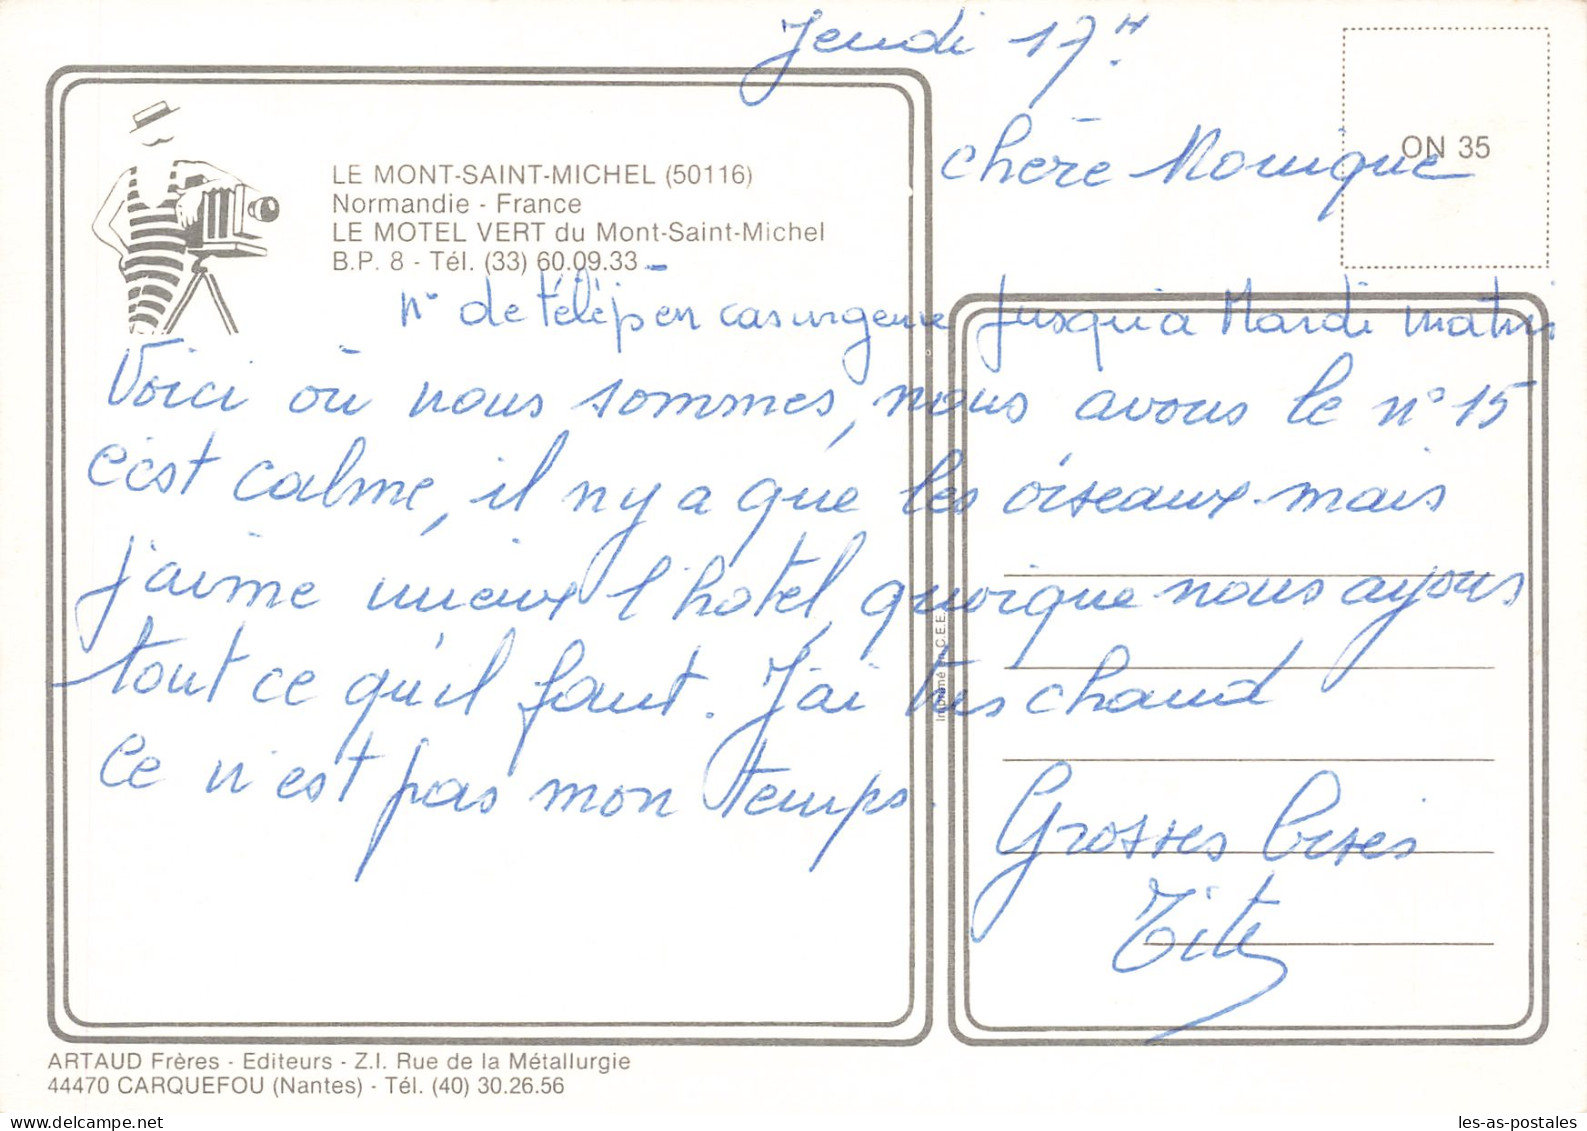 Jeudi 17H.
chère Monique
ON 35
LE MONT-SAINT-MICHEL (50116)
Normandie - France
LE MOTEL VERT du Mont-Saint-Michel
B.P. 8 - Tél. (33) 60.09.33
n° de télép en cas urgence jusqu'à Mardi matin
Voici où nous sommes, nous avons le n° 15
c'est calme, il n'y a que les oiseaux mais
j'aime mieux l'hotel, quoique nous ayons
tout ce qu'il faut. J'ai très chaud
Ce n'est pas mon temps.
Grosses bises
Tite
Imprimé en C.E.E.
ARTAUD Frères - Editeurs - Z.I. Rue de la Métallurgie
44470 CARQUEFOU (Nantes) - Tél. (40) 30.26.56
les-as-postales